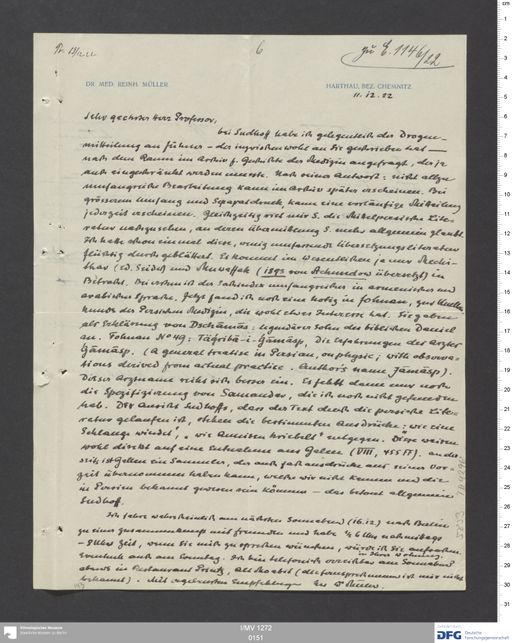 6
zu E. 1146/22
DR MED. REINH. MÜLLER
HARTHAU, BEZ. CHEMNITZ
11.12.22
Sehr geehrter Herr Professor,
bei Sudhoff habe ich gelegentlich der Drogen-
mitteilung an führers – der inzwischen wohl an Sie geschrieben hat –
nach dem Raum im Archiv f. Geschichte der Medizin angefragt, der ja
auch eingeschränkt werden musste. Nach seiner Antwort: nicht allzu
umfangreiche Bearbeitung kann im Archiv später erscheinen. Bei
grösserem Umfang und Separatdruck, kann eine vorläufige Mitteilung
jederzeit erscheinen. Gleichzeitig riet mir S. die Mittelpersische Lite-
ratur nachzusehen, an deren Übermittlung S. mehr allgemein glaubt.
Ich habe schon einmal diese, wenig umfassende Übersetzungsliteratur
flüchtig durchgeblättert. Es kommt im Wesentlichen ja nur Mechi-
thar (ed. Seidel) und Muwaffak (1893 von Achundow übersetzt) in
Betracht. Bei ersterem ist der Sachindex umfangreicher in armenischer und
arabischer Sprache. Jetzt fand ich noch eine Notiz in Fohnan, zur Quellen-
kunde der Persischen Medizin, die wohl etwas Interesse hat. Sie geben
als Erklärung von Dschāmās: legendärer Sohn des biblischen Daniel
an. Fohnan No 49: Tāǧribā-i-Ǧāmāsp, Die Erfahrungen des Arztes
Ǧāmāsp. (A general treatise in Persian, on physic; with observa-
tions derived from actual practice. Author's name Jāmāsp).
Dieser Arztname reiht sich besser ein. Es fehlt dann nur noch
die Spezifizierung von Samandar, die ich noch nicht gefunden
hab. Der Ansicht Sudhoffs, dass der Text durch die persische Lite-
ratur gelaufen ist, stehen die bestimmten Ausdrücke: „wie eine
Schlange windet", „wie Ameisen kriebelt" entgegen. Diese weisen
wohl direkt auf eine Entnahme aus Galen (VIII, 455 ff). andrer-
seits ist Galen ein Sammler, der auch Fachausdrücke aus seiner Vor-
zeit übernommen haben kann, welche wir nicht kennen und die
in Persien bekannt gewesen sein können – das betont allgemein
Sudhoff.
Ich fahre wahrscheinlich am nächsten Sonnabend (16.12) nach Berlin
zu einer Zusammenkunft mit Freunden und habe ½ 6 Uhr nachmittags
– 8 Uhr Zeit, wenn Sie mich zu sprechen wünschen, würde ich Sie aufsuchen.
in Ihrer Wohnung
Eventuell auch am Sonntag. Ich bin telefonisch erreichbar am Sonnabend
abends im Restaurant
bekannt). Mit ergebensten Empfehlungen Ihr Dr Müller.
Ethnologisches Museum
Staatliche Museen zu Berlin
I/MV 1272
0151
DFG
Deutsche
Forschungsgemeinschaft